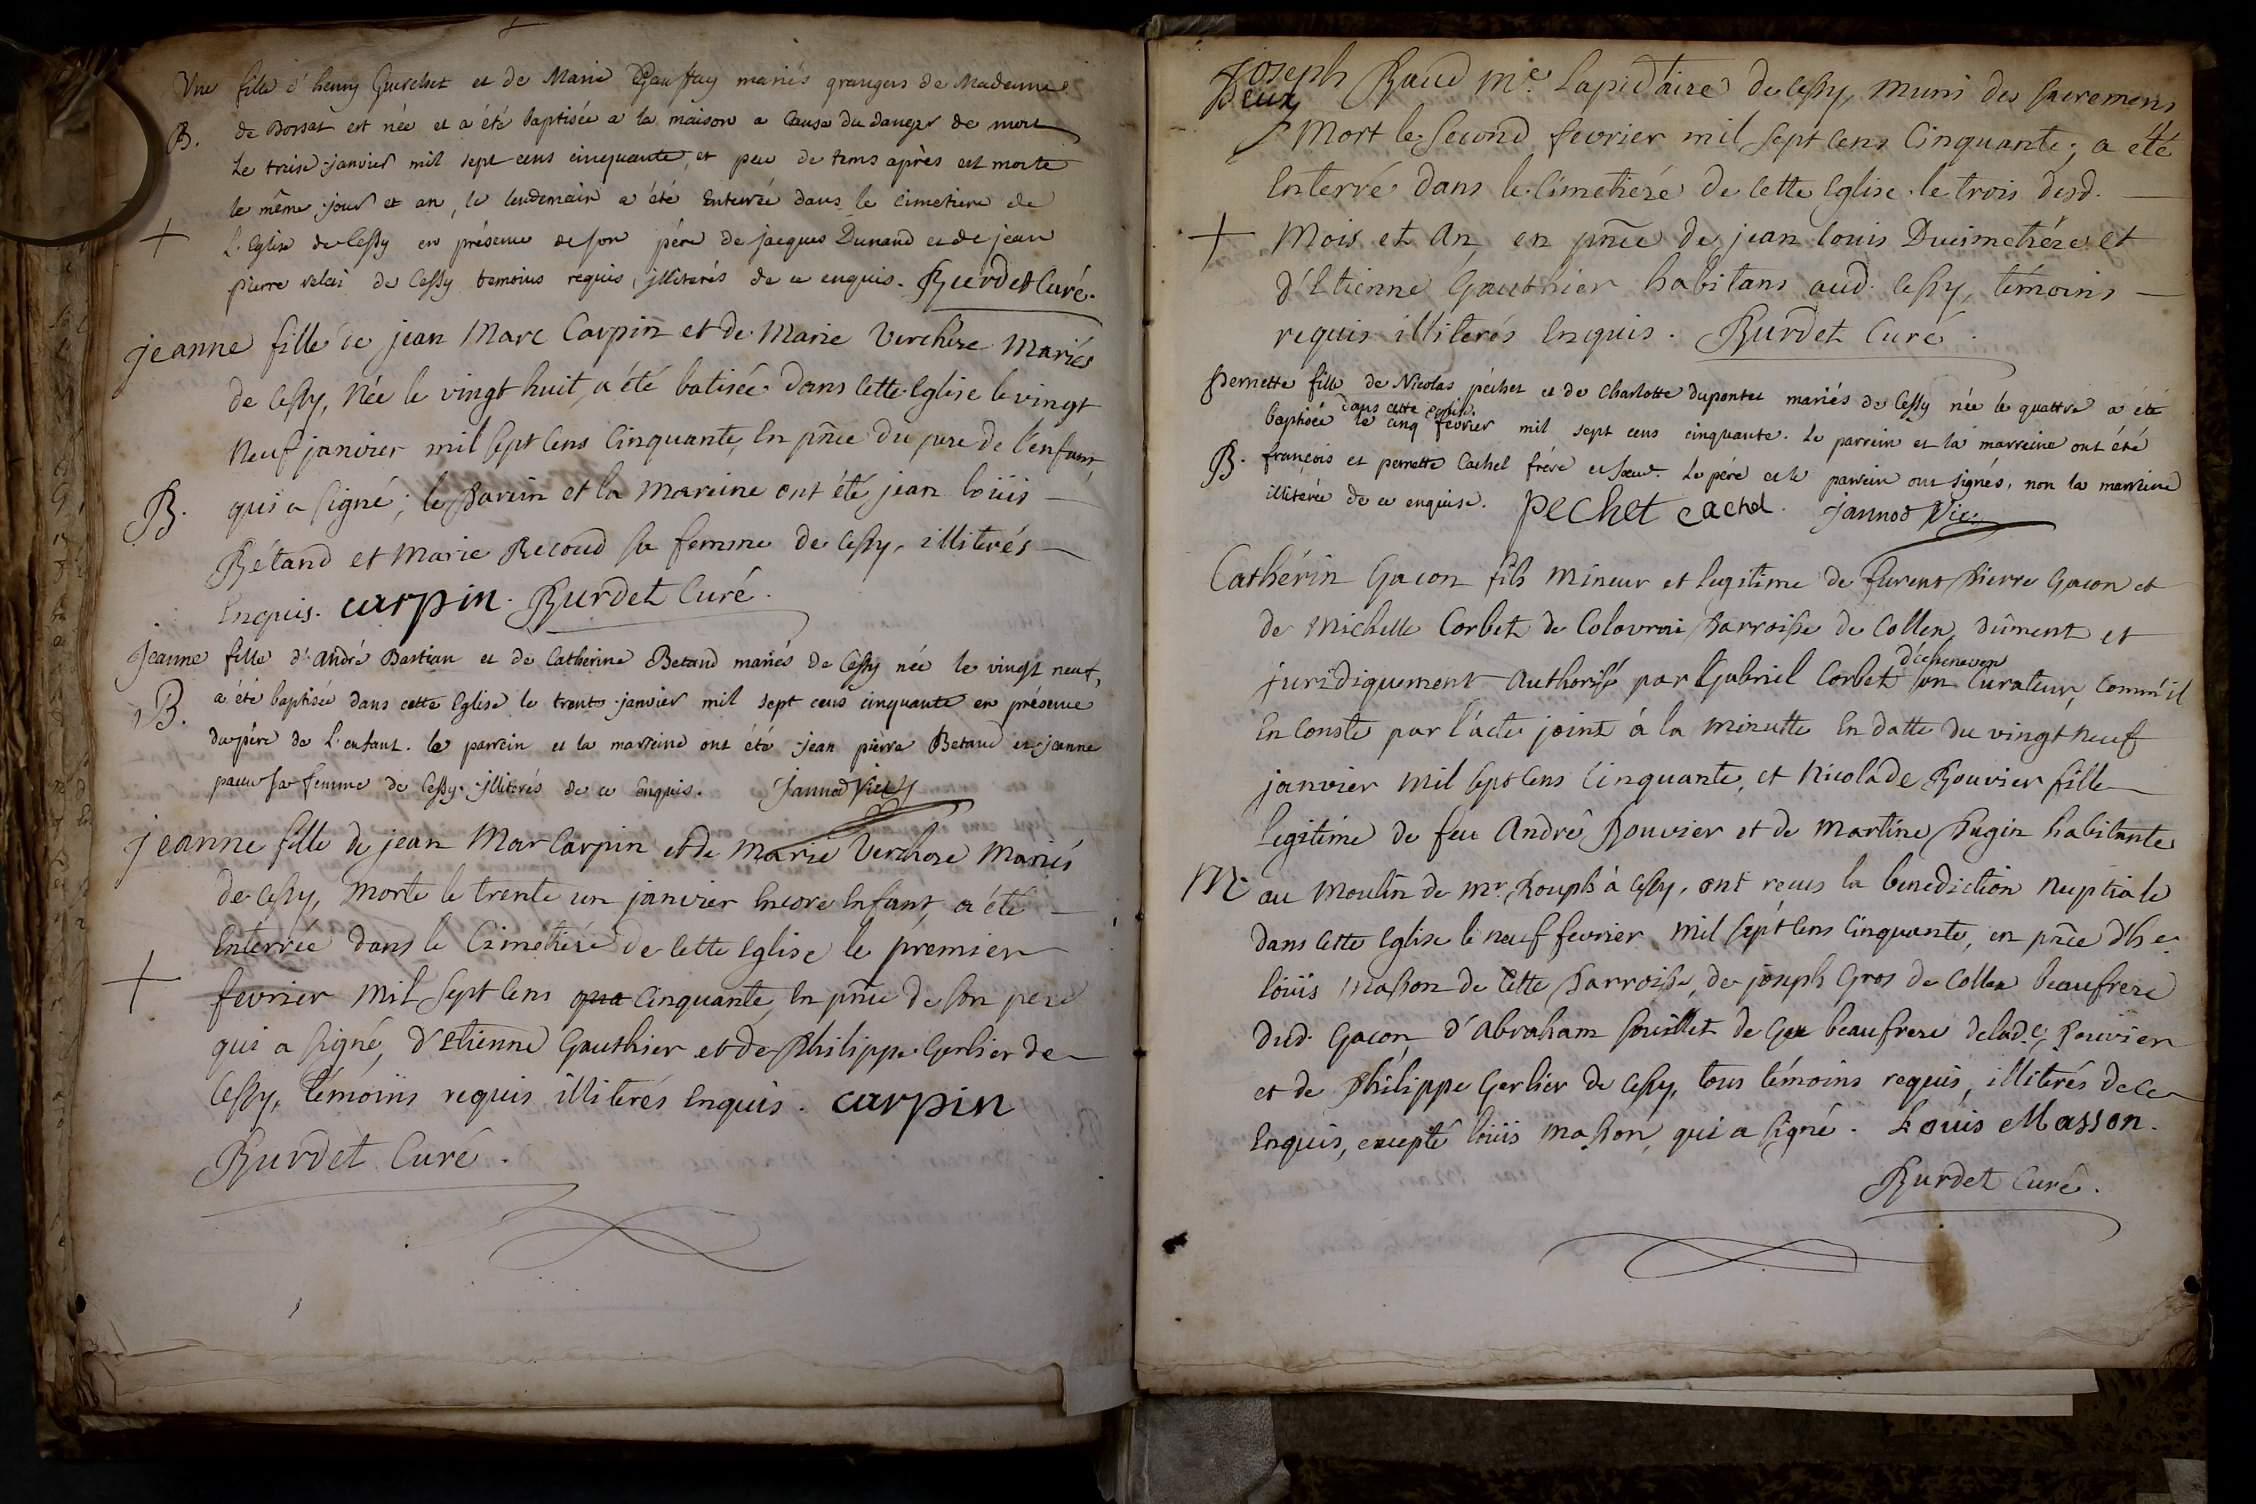 Une fille d'henry Guerchet et de Marie mariés grangers de Madame
B. de Borsat est née et a été baptisée a la maison a Cause du danger de mort
Le treise janvier mil sept cens cinquante, et peu de tems après est morte
le même jour et an, le lendemain a été Enterrée dans le cimetiere de
+ L'Eglise de Cessy en présence de son père de jacques Dunand et de jean
pierre velai de Cessy temoins requis, jlliterés de ce enquis. Burdet Curé.
jeanne fille de jean Marc Carpin et de Marie Verchere Mariés
de Cessy, Née le vingt huit, a été batisée dans Cette Eglise le vingt
Neuf janvier mil sept Cens Cinquante, En pnce du pere de l'enfant,
B. qui a signé; le Parein et la Mareine ont été jean loüis
Bétand et Marie Recoud sa femme de Cessy, illiterés
Enquis. carpin. Burdet Curé.
Jeanne fille d'André Bastian et de Catherine Betand mariés de Cessy née le vingt neuf,
B. a été baptisée dans cette Eglise le trente janvier mil sept cens cinquante en présence
du père de L'enfant. le parrein et la marreine ont été jean pierre Betand et jeanne
sa femme de Cessy. jlliterés de ce Enquis. Jannod Vic
jeanne fille de jean Mar Carpin et de Marie Verchere Mariés
de Cessy, Morte le trente un janvier Encore Enfant, a été
Enterrée dans le Cimetiére de Cette Eglise le premier
+ fevrier Mil Sept Cens qua Cinquante, En pnce de Son pere
qui a signé, d'Etienne Gauthier et de Philippe Gerlier de
Cessy, témoins requis illiterés Enquis. carpin
Burdet Curé.
Joseph Baud Me. Lapidaire de Cessy, Muni des Sacremens
Deux
Mort le Second fevrier mil Sept Cens Cinquante, a été
Enterré dans le Cimetiére de Cette Eglise le trois dud.
+ Mois et An, en pnce de jean louis Ducimetiére et
d'Etienne Gauthier habitans aud. Cessy, témoins
requis illiterés Enquis. Burdet Curé.
Pernette fille de Nicolas péchet et de Charlotte dupontet mariés de Cessy née le quattre a été
dans cette Eglise
baptisée le cinq fevrier mil sept cens cinquante. Le parrein et la marreine ont été
B. françois et pernette Cachel frére et sœur. Le pére et le parrein ont signés, non la marreine
illiterée de ce enquise. Pechet cachel. Jannod Vic.
Cathérin Gacon fils Mineur et legitime de furent Pierre Gacon et
de Michelle Corbet de Colovrai Parroisse de Collex, dûment et
d'echenevex
juridiquement Authorisé par Gabriel Corbet son Curateur, Comm'il
En Conste par l'acte joint à la Minutte En datte du vingt neuf
janvier Mil Sept Cens Cinquante, et Nicolade Bouvier fille
legitime de feu André Bouvier et de Martine Pugin habitante
M. au Moulin de Mr. Rouph à Cessy, ont reçus la benediction Nuptiale
dans Cette Eglise le neuf fevrier Mil Sept Cens Cinquante, en pnce d'he
loüis Masson de Cette Parroisse, de joseph Gros de Collex beaufrere
dud. Gacon, d'Abraham de Gex beaufrere delade. Bouvier
et de Philippe Gerlier de Cessy, tous témoins requis, illiterés de ce
Enquis, excepté loüis Masson, qui a signé. Louis Masson.
Burdet Curé.